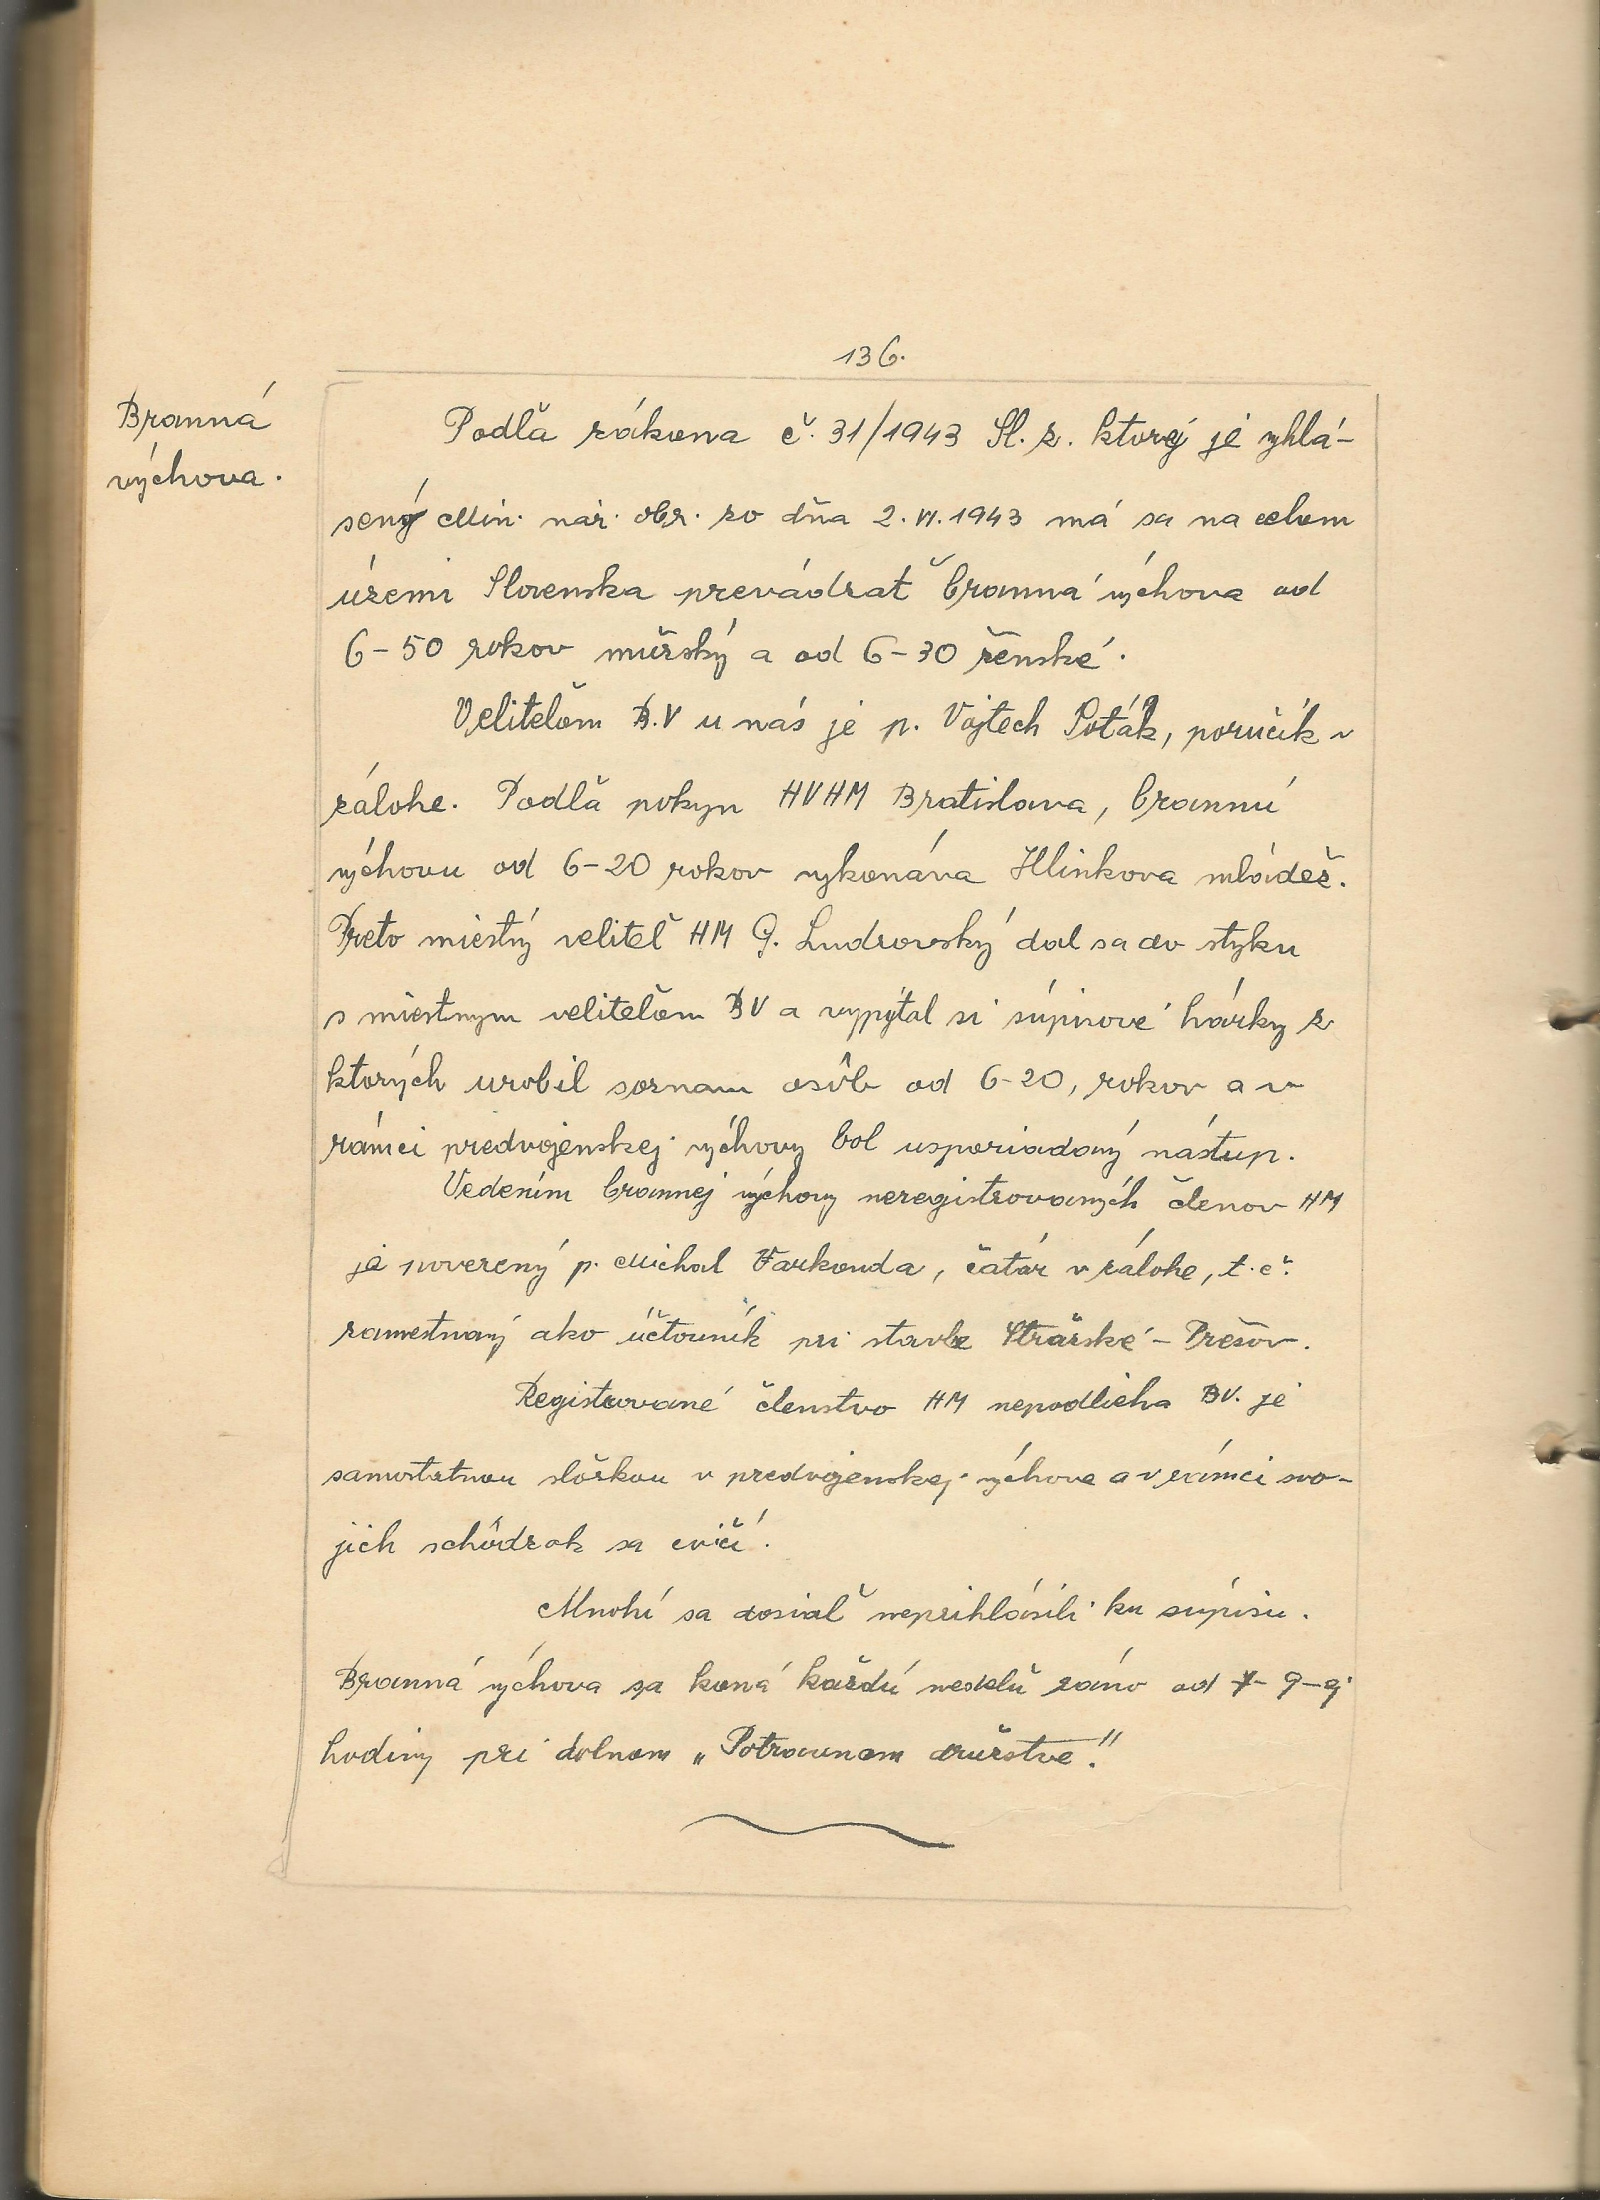 136.
Branná
výchova.
Podľa zákona č. 31/1943 Sl. z. ktorý je vyhlá-
sený Min. nár. obr. zo dňa 2. VI. 1943 má sa na celom
území Slovenska prevádzať branná výchova od
6-50 rokov mužský a od 6-30 ženské.
Veliteľom B.V u nás je p. Vojtech Poták, poručík v
zálohe. Podľa pokyn HVHM Bratislava, brannú
výchovu od 6-20 rokov vykonáva Hlinkova mládež.
Preto miestný veliteľ HM G. Ludrovský dal sa do styku
s miestnym veliteľom BV a vypýtal si súpisové hárky z
ktorých urobil soznam osôb od 6-20, rokov a v
rámci predvojenskej výchovy bol usporiadaný nástup.
Vedením brannej výchovy neregistrovaných členov HM
je poverený p. Michal Farkonda, čatár v zálohe, t. č.
zamestnaný ako účtovník pri stavbe Strážské - Prešov.
Registrované členstvo HM nepodlieha BV. je
samostatnou složkou v predvojenskej výchove a v rámci svo-
jich schôdzok sa cvičí.
Mnohí sa dosiaľ neprihlásili ku súpisu.
Branná výchova sa koná každú nedeľu ráno od 7- 9-9
hodiny pri dolnom „Potravnom družstve."